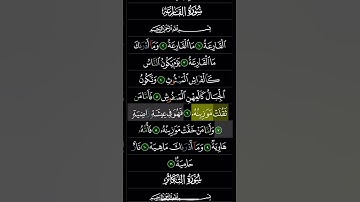 سُورَةُ القَارِعَةِ
بِسْمِ اللَّهِ الرَّحْمَٰنِ الرَّحِيمِ
ٱلْقَارِعَةُ ١ مَا ٱلْقَارِعَةُ ٢ وَمَآ أَدْرَىٰكَ
مَا ٱلْقَارِعَةُ ٣ يَوْمَ يَكُونُ ٱلنَّاسُ
كَٱلْفَرَاشِ ٱلْمَبْثُوثِ ٤ وَتَكُونُ
ٱلْجِبَالُ كَٱلْعِهْنِ ٱلْمَنفُوشِ ٥ فَأَمَّا مَن
ثَقُلَتْ مَوَٰزِينُهُۥ ٦ فَهُوَ فِى عِيشَةٍ رَّاضِيَةٍ
٧ وَأَمَّا مَنْ خَفَّتْ مَوَٰزِينُهُۥ ٨ فَأُمُّهُۥ
هَاوِيَةٌ ٩ وَمَآ أَدْرَىٰكَ مَا هِيَهْ ١٠ نَارٌ
حَامِيَةٌۢ ١١
سُورَةُ التَّكَاثُرِ
بِسْمِ اللَّهِ الرَّحْمَٰنِ الرَّحِيمِ